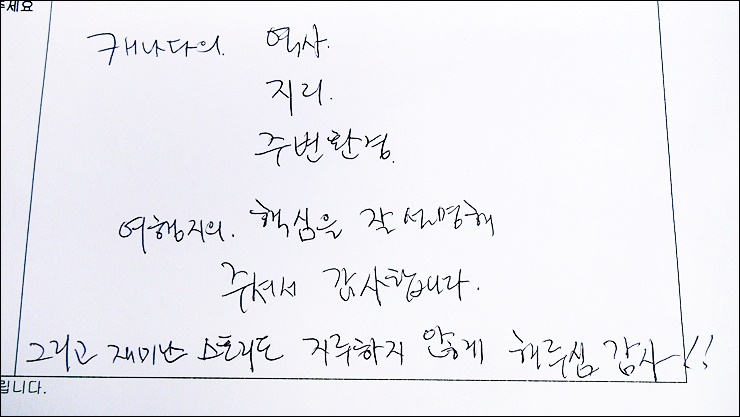 주세요
캐나다의. 역사.
지리.
주변환경.
여행지의. 핵심을 잘 설명해
주셔서 감사합니다.
그리고 재미난 스토리도 지루하지 않게 해주심 감사!!
립니다.